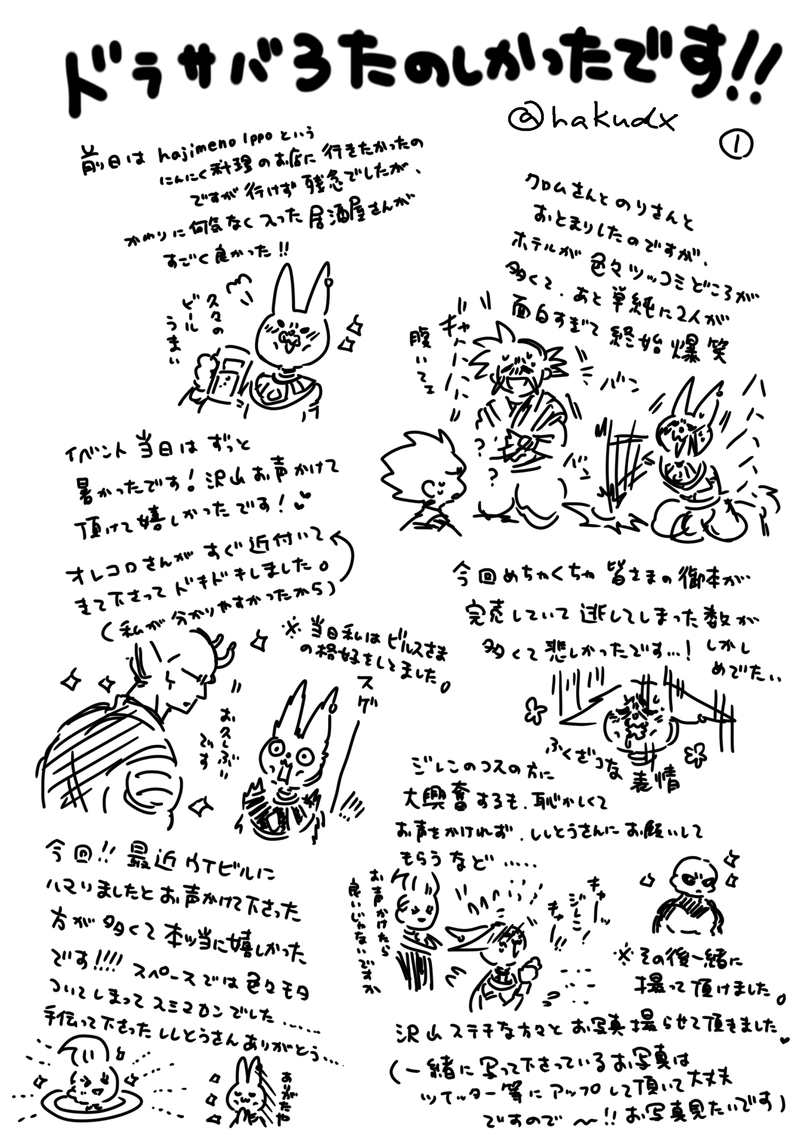 ドラサバ3たのしかったです!!
@hakudx
①
前日は hajimeno Ippo という
にんにく料理のお店に行きたかったの
ですが行けず残念でしたが、
かわりに何気なく入った居酒屋さんが
すごく良かった!!
久々の
ビール
うまい
クロムさんとのりさんと
おとまりしたのですが、
ホテルが色々ツッコミどころが
多くて、あと単純に2人が
面白すぎて終始爆笑
腹いてェ
ギャハハハハ
バン
バン
?
?
イベント当日はずっと
暑かったです!沢山お声かけて
頂けて嬉しかったです!
オレコロさんがすぐ近付いて
きて下さってドキドキしました。
(私が分かりやすかったから)
※当日私はビルスさま
の格好をしてました。
スゲ
お久しぶり
です
今回めちゃくちゃ皆さまの御本が
完売していて逃してしまった数が
多くて悲しかったです…!しかし
めでたい、、
ふくざつな
表情
ジレンのコスの方に
大興奮するも、恥かしくて
お声をかけれず、ししとうさんにお願いして
もらうなど……
お声かけたら
良いじゃないですか
キャーッ
ジレン
キャー!!
※その後一緒に
撮って頂けました。
今回!!最近ウイビルに
ハマりましたとお声かけて下さった
方が多くて本当に嬉しかった
です!!!!スペースでは色々モタ
ついてしまってスミマセンでした……
手伝って下さったししとうさんありがとう…
ありがたや
沢山ステキな方々とお写真撮らせて頂きました
(一緒に写って下さっているお写真は
ツイッター等にアップして頂いて大丈夫
ですので〜!!お写真見たいです)